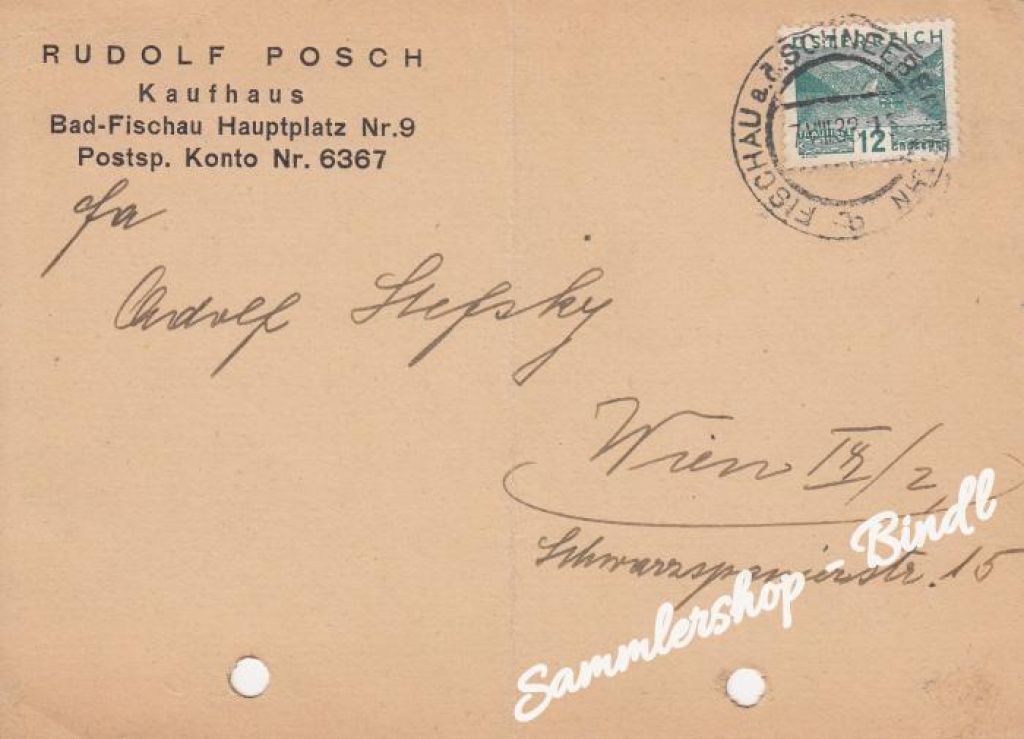 RUDOLF POSCH
Kaufhaus
Bad-Fischau Hauptplatz Nr.9
Postsp. Konto Nr. 6367
ÖSTERREICH
12
FISCHAU a.d. SCHNEEBERGBAHN
Fa
Adolf Stefsky
Wien IX/2
Schwarzspanierstr. 15
Sammlershop - Bindl